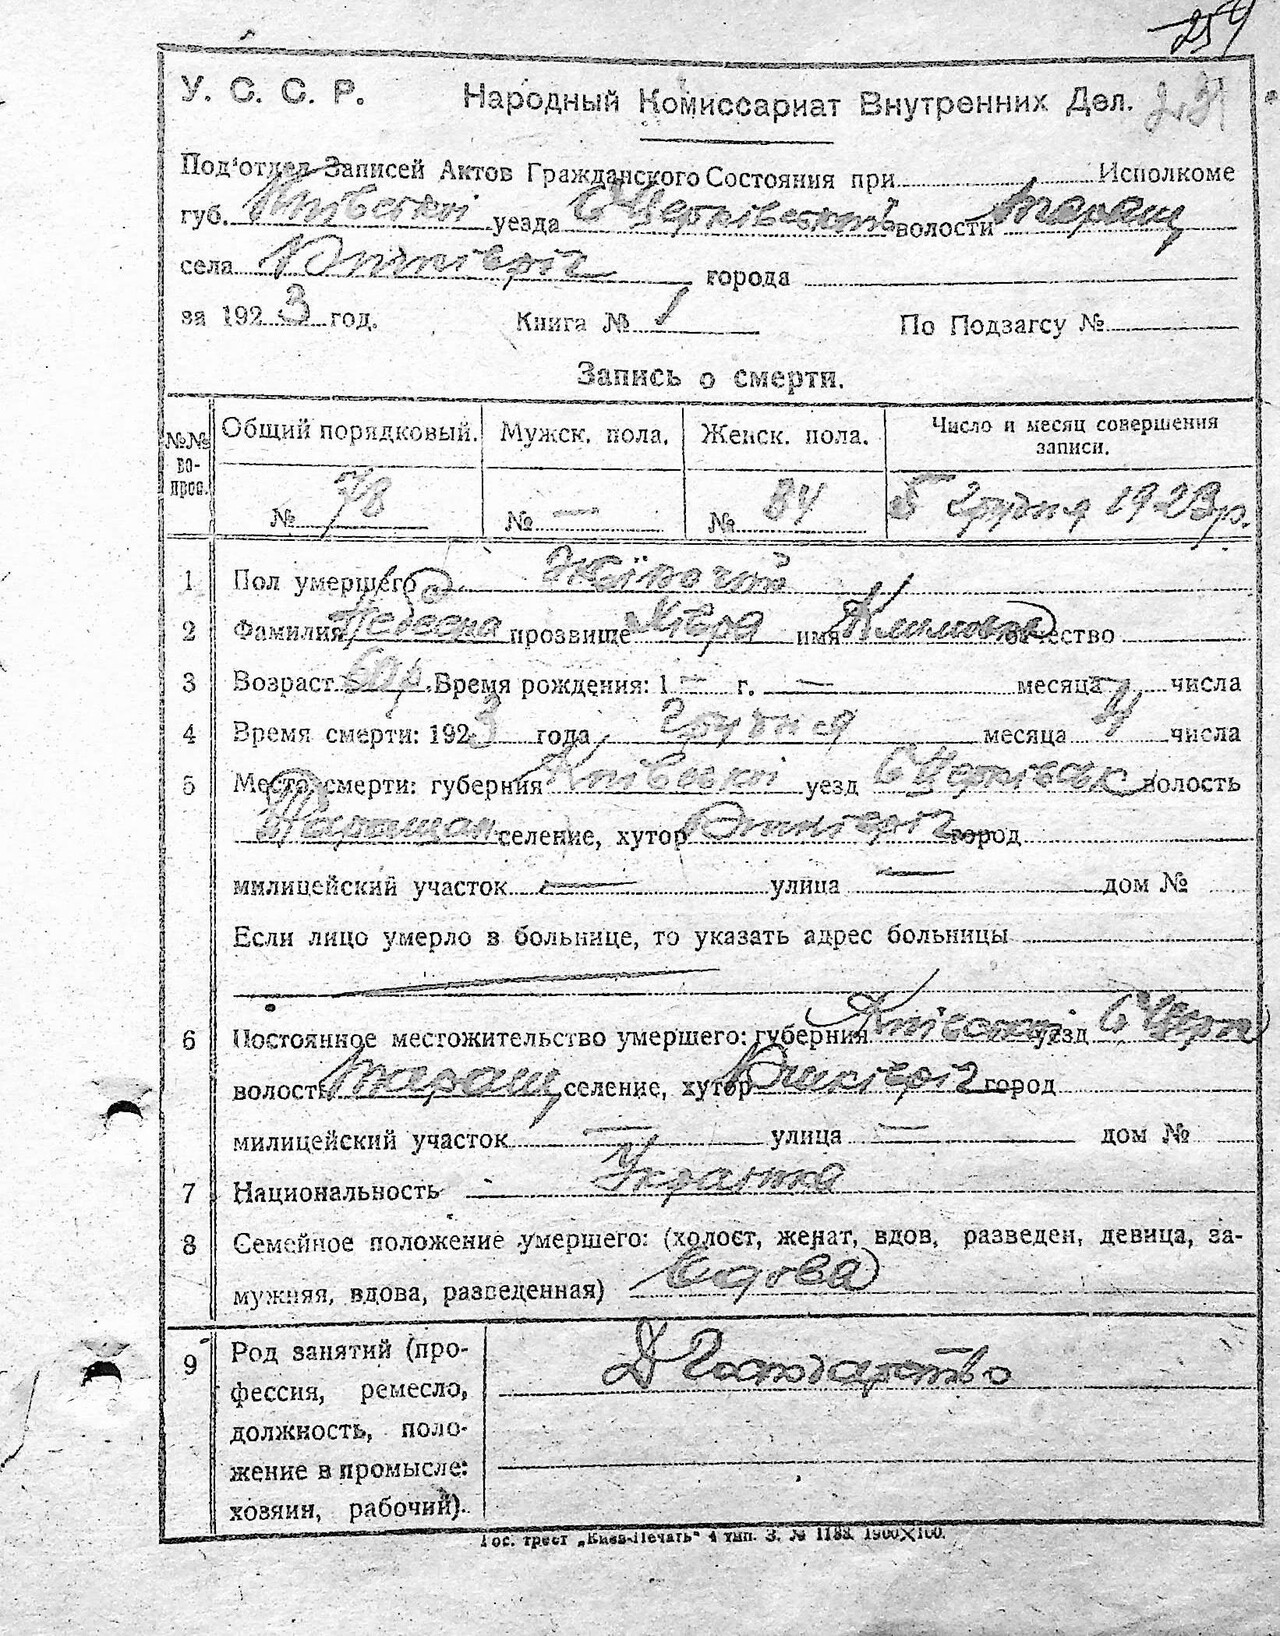 254
У. С. С. Р. Народный Комиссариат Внутренних Дел.
Под'отдел Записей Актов Гражданского Состояния при Исполкоме
губ. Київської уезда волости Таращ
села города
за 1923 год. Книга № 1 По Подзагсу №
Запись о смерти.
№№ вопрос. Общий порядковый. Мужск. пола. Женск. пола. Число и месяц совершения записи.
№ 78 № — № 84 5 Грудня 1923 р.
1 Пол умершего Жіночий
2 Фамилия прозвище имя Климовна отчество
3 Возраст 60 р. Время рождения: 1 — г. — месяца числа
4 Время смерти: 1923 года Грудня месяца 4 числа
5 Место смерти: губерния Київської уезд волость
Таращан селение, хутор город
милицейский участок — улица — дом №
Если лицо умерло в больнице, то указать адрес больницы
6 Постоянное местожительство умершего: губерния Київської уезд Б Церк
волость Таращ селение, хутор город
милицейский участок — улица — дом №
7 Национальность Українка
8 Семейное положение умершего: (холост, женат, вдов, разведен, девица, за-
мужняя, вдова, разведенная) Вдова
9 Род занятий (про- Д Господарство
фессия, ремесло,
должность, поло-
жение в промысле:
хозяин, рабочий).
Гос. трест „Киев-Печать“ 4 тип. З. № 1188 1900✕100.